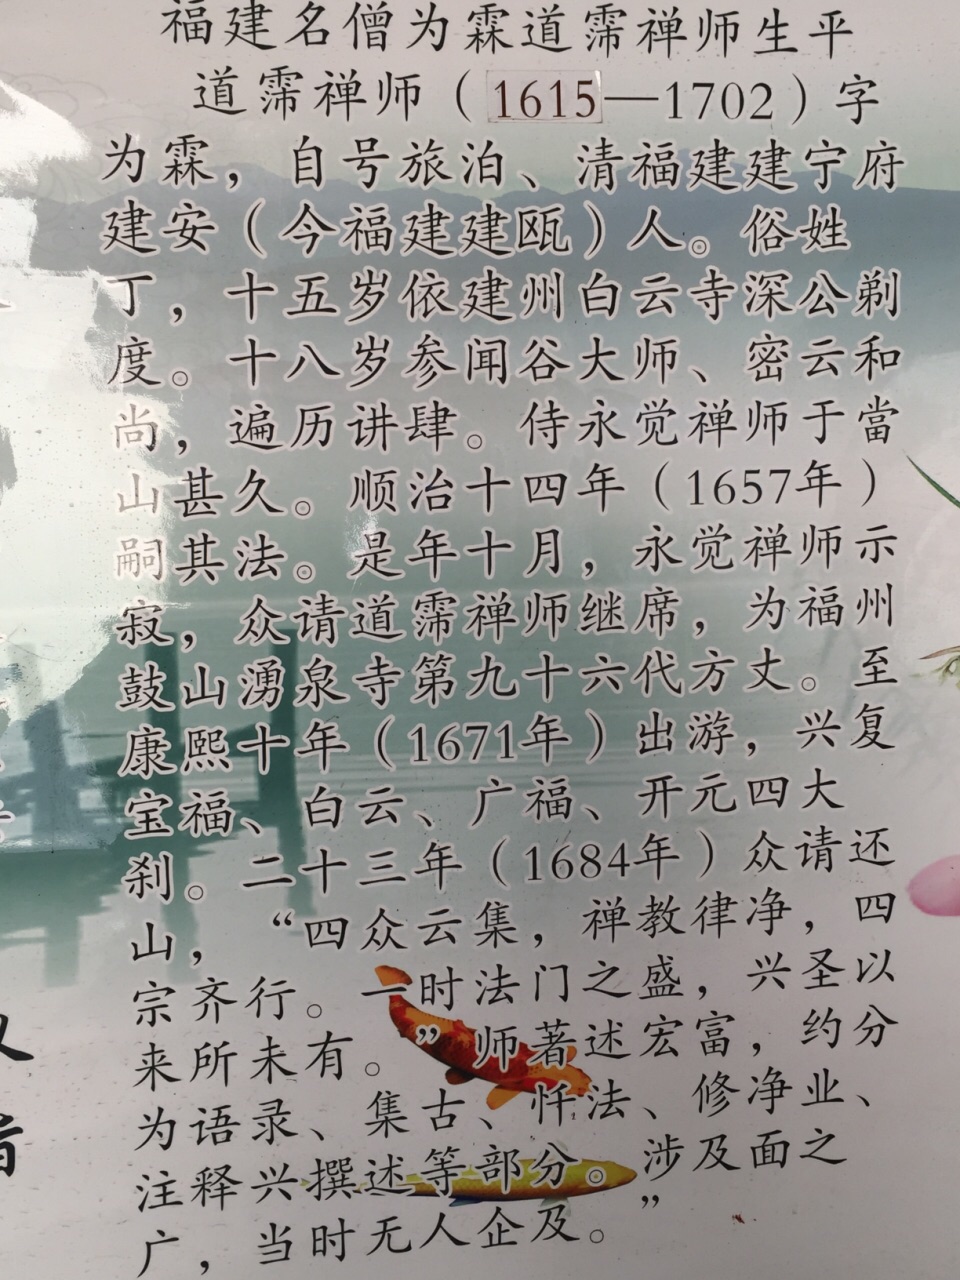 福建名僧为霖道霈禅师生平
道霈禅师（1615—1702）字
为霖，自号旅泊、清福建建宁府
建安（今福建建瓯）人。俗姓
丁，十五岁依建州白云寺深公剃
度。十八岁参闻谷大师、密云和
尚，遍历讲肆。侍永觉禅师于當
山甚久。顺治十四年（1657年）
嗣其法。是年十月，永觉禅师示
寂，众请道霈禅师继席，为福州
鼓山湧泉寺第九十六代方丈。至
康熙十年（1671年）出游，兴复
宝福、白云、广福、开元四大
刹。二十三年（1684年）众请还
山，“四众云集，禅教律净，四
宗齐行。一时法门之盛，兴圣以
来所未有。”师著述宏富，约分
为语录、集古、忏法、修净业、
注释兴撰述等部分。涉及面之
广，当时无人企及。”